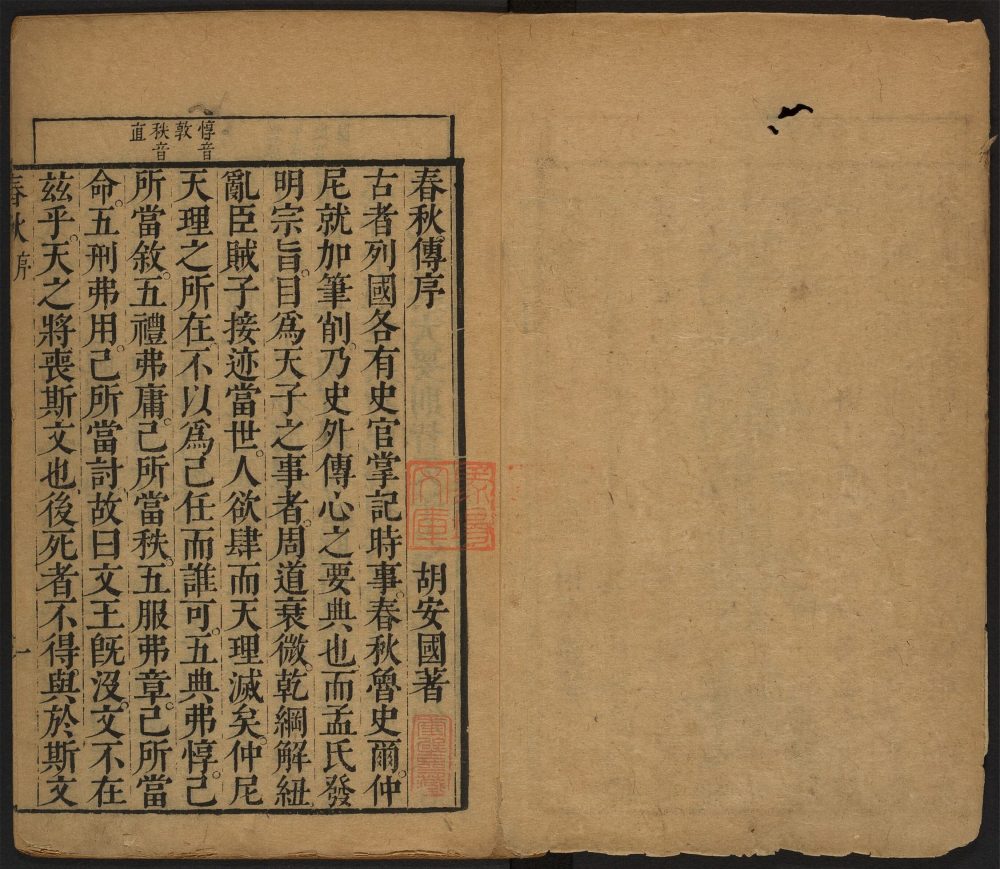 惇音
敦
秩音
直
春秋傳序　胡安國著
古者列國各有史官掌記時事。春秋魯史爾。仲
尼就加筆削。乃史外傳心之要典也而孟氏發
明宗旨。目爲天子之事者。周道衰微。乾綱解紐
亂臣賊子接迹當世。人欲肆而天理滅矣。仲尼
天理之所在。不以爲己任而誰可。五典弗惇。己
所當敘。五禮弗庸。己所當秩。五服弗章。己所當
命。五刑弗用。己所當討故曰文王旣沒。文不在
兹乎。天之將喪斯文也後死者不得。與於斯文
春秋序　一
文庫